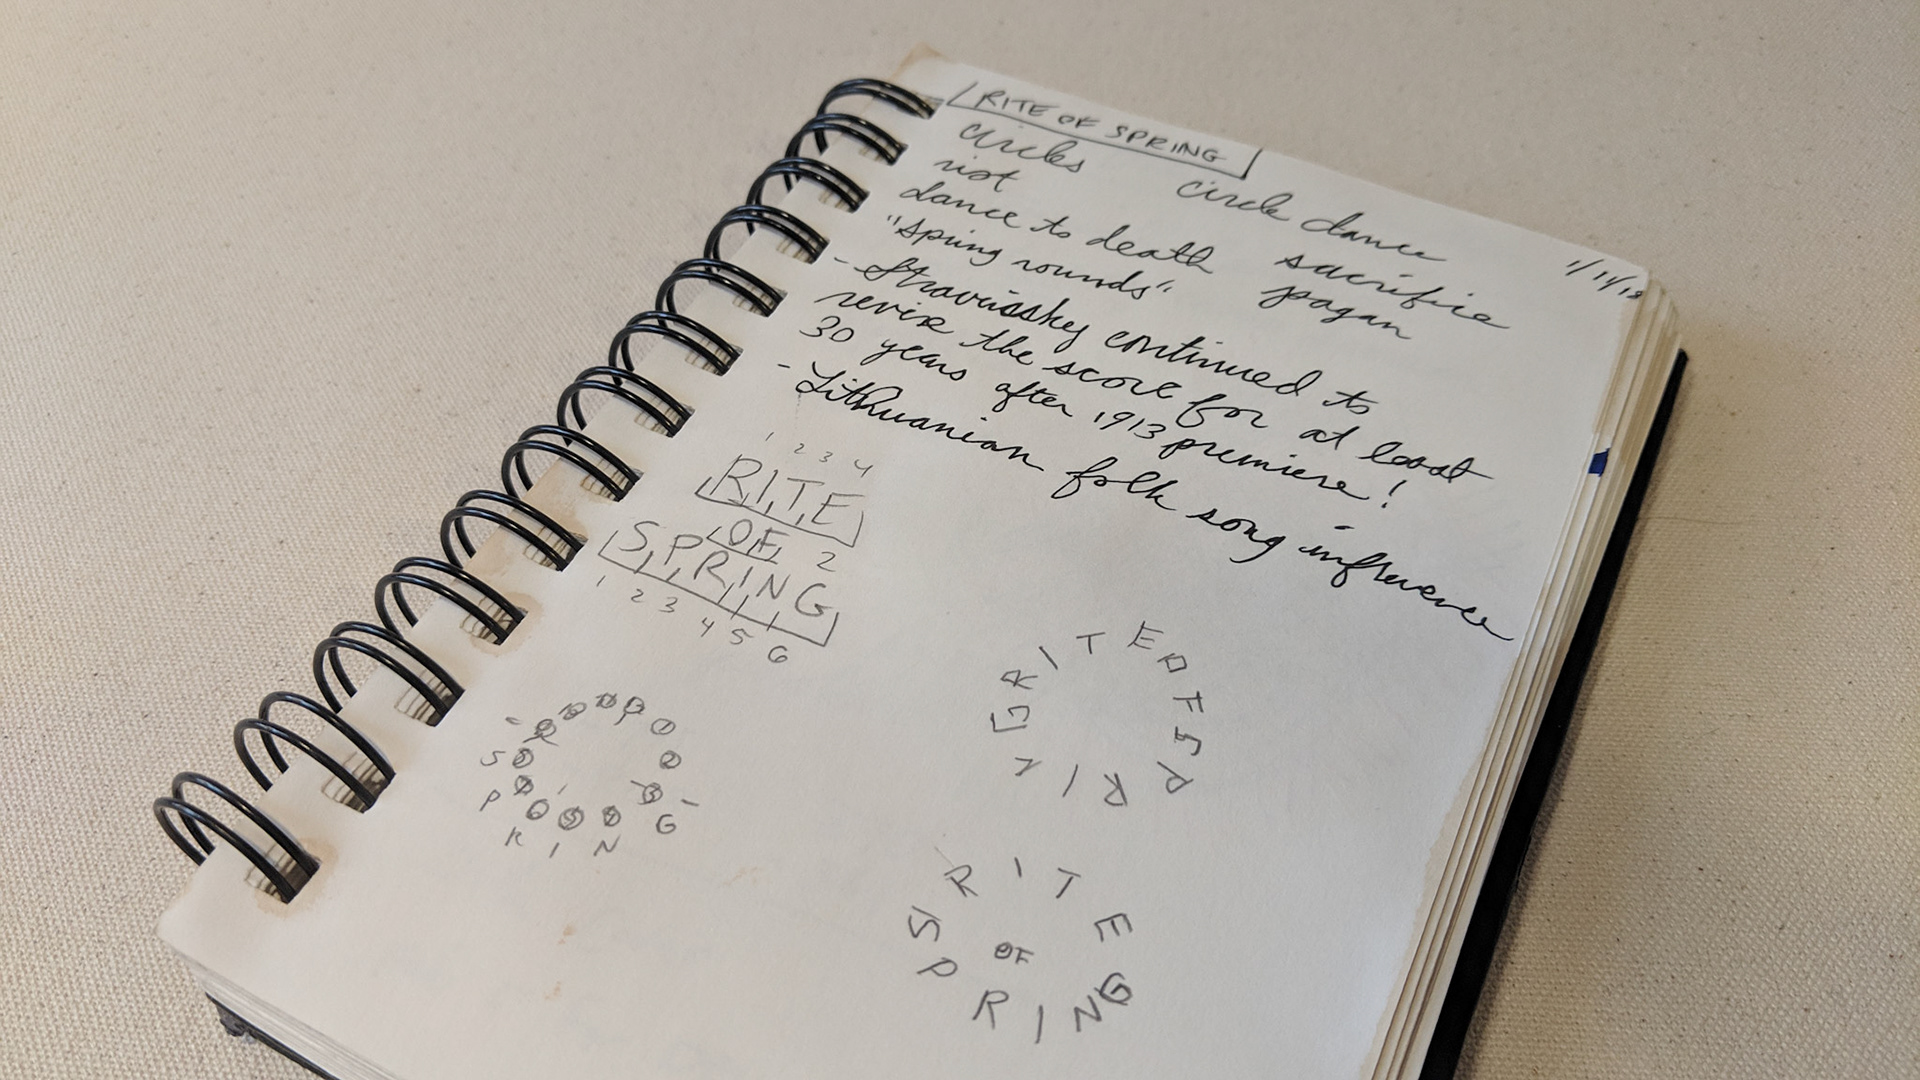 RITE OF SPRING
circles circle dance
riot
dance to death sacrifice
"Spring rounds" pagan
1/11/18
- Stravinsky continued to
revise the score for at least
30 years after 1913 premiere!
- Lithuanian folk song influence
1 2 3 4
RITE
OF 2
SPRING
1 2 3 4 5 6
S P R I N G
RITE OF SPRING
RITE
OF
SPRING